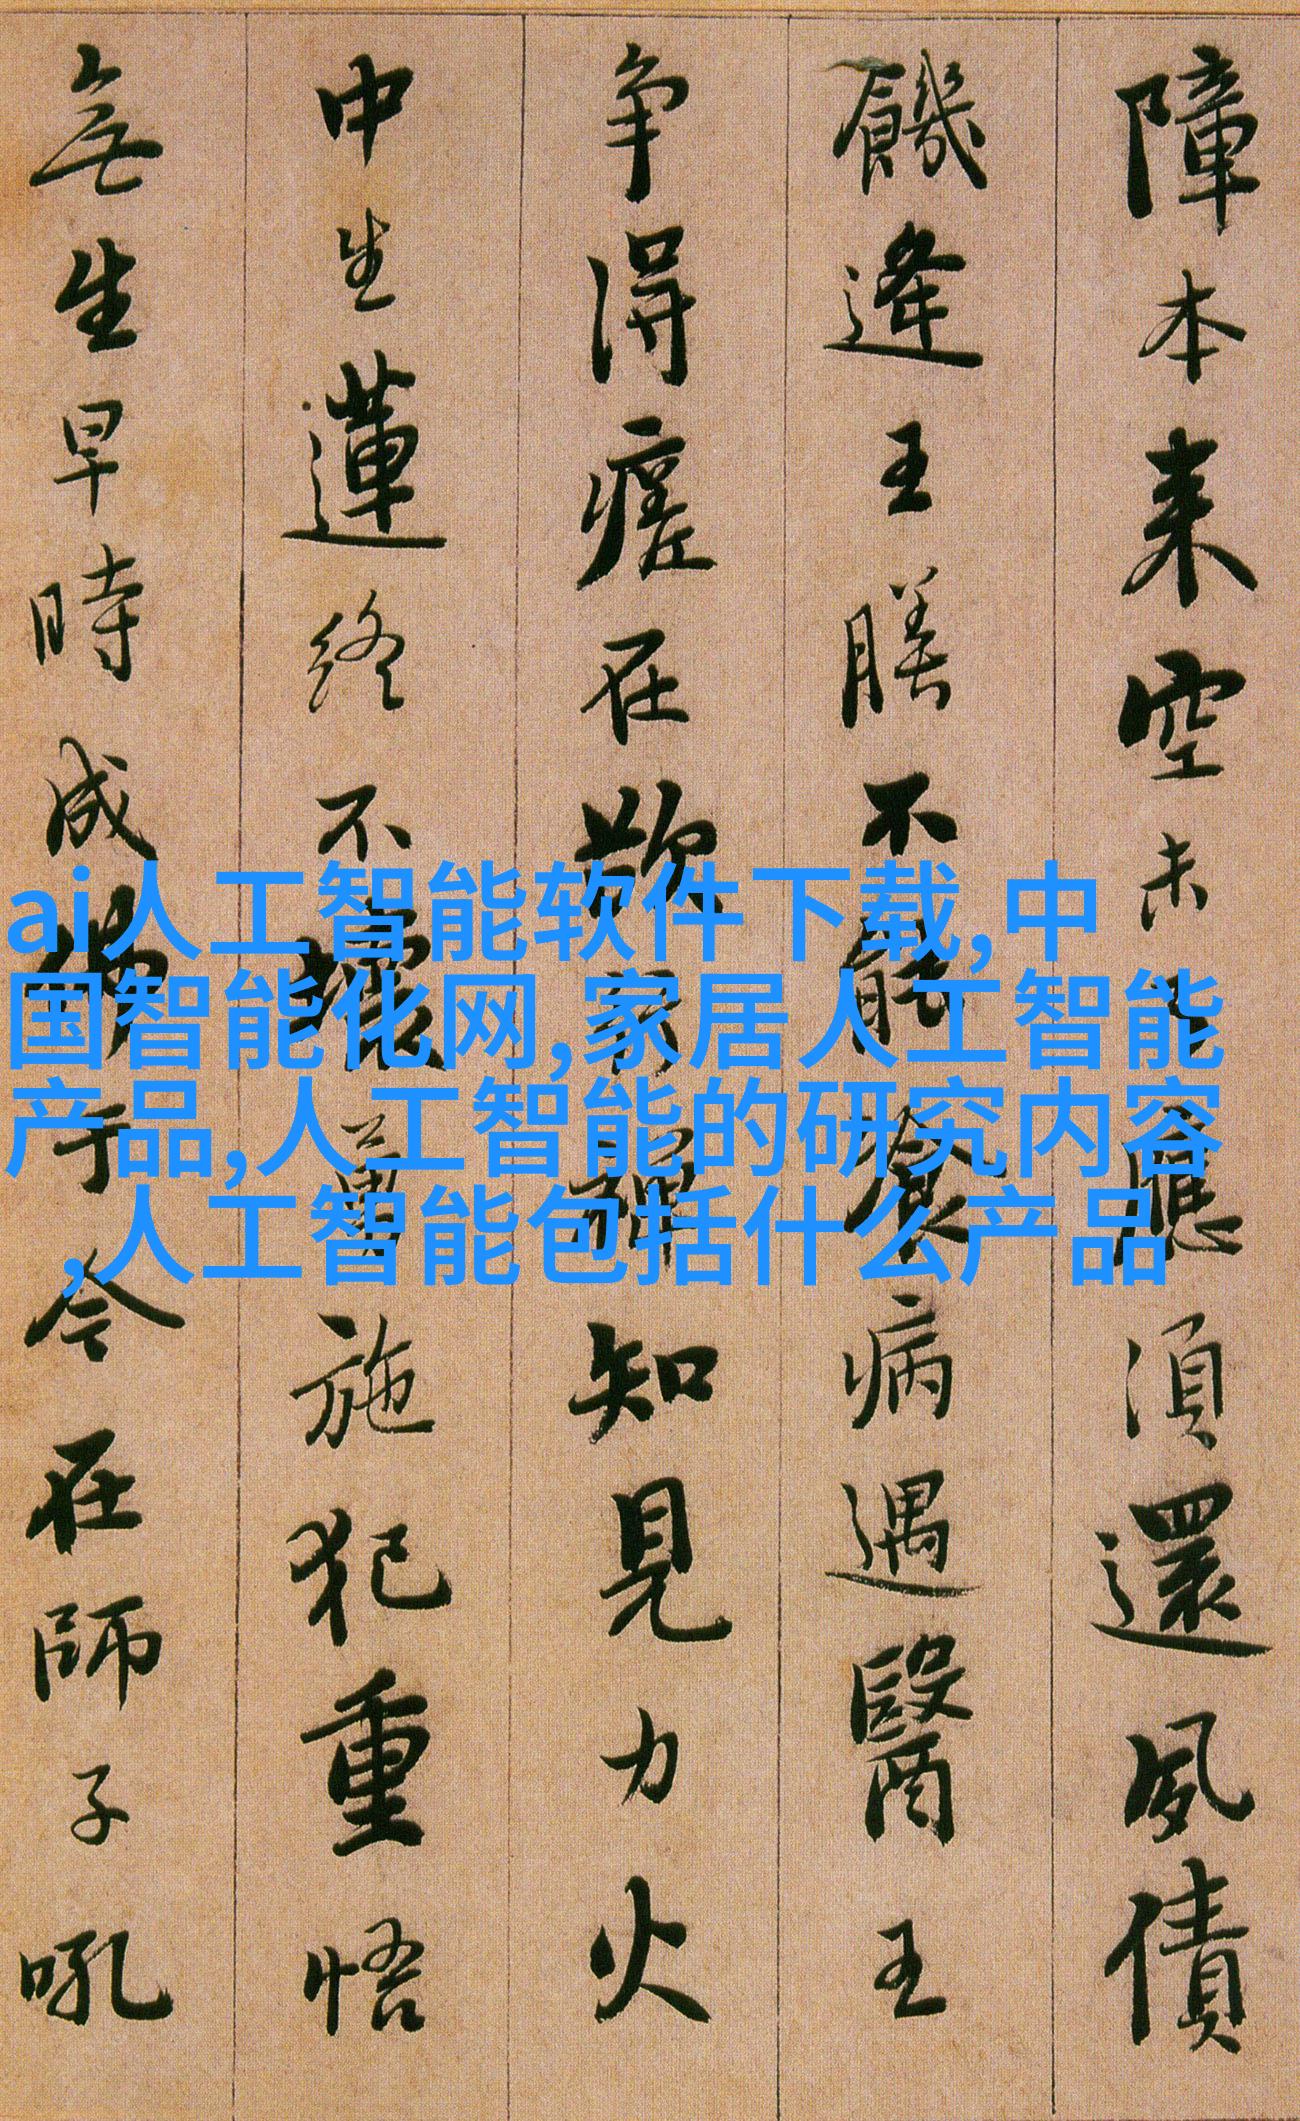 障本来空未了應須還夙債
饑逢王膳不能餐病遇醫王
争得瘥在欲行禪知見力火
中生蓮終不壞勇施犯重悟
無生早時成佛于今在師子吼
ai人工智能软件下载,中
国智能化网,家居人工智能
产品,人工智能的研究内容
,人工智能包括什么产品